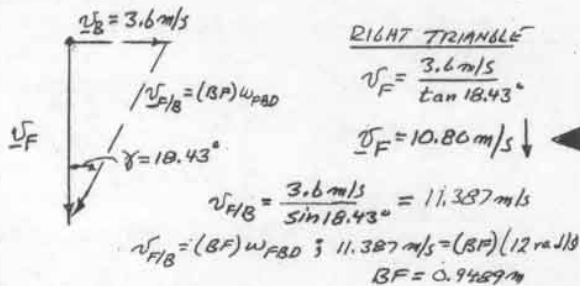 v_B = 3.6 m/s
v_F/B = (BF) ω_FBD
v_F
γ = 18.43°
RIGHT TRIANGLE
v_F = 3.6 m/s / tan 18.43°
v_F = 10.80 m/s ↓
v_F/B = 3.6 m/s / sin 18.43° = 11.387 m/s
v_F/B = (BF) ω_FBD ; 11.387 m/s = (BF) (12 rad/s
BF = 0.9489 m